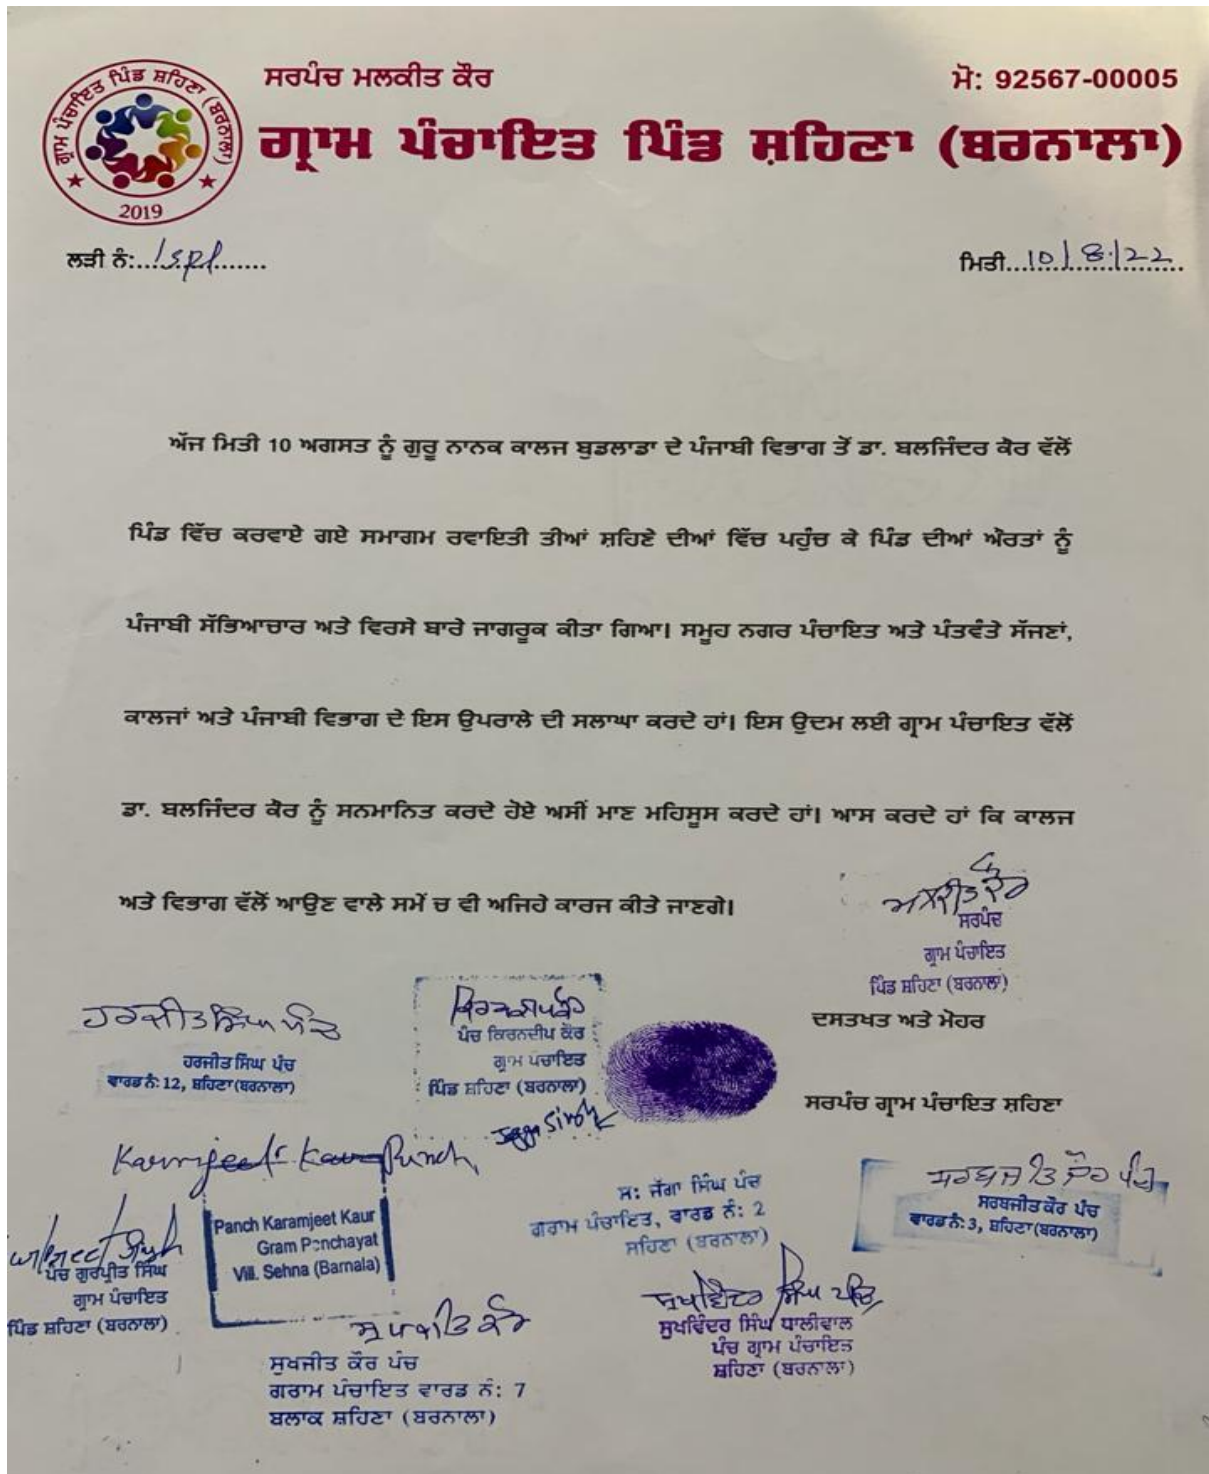 ਗ੍ਰਾਮ ਪੰਚਾਇਤ ਪਿੰਡ ਸ਼ਹਿਣਾ (ਬਰਨਾਲਾ)
2019
ਸਰਪੰਚ ਮਲਕੀਤ ਕੌਰ
ਮੋ: 92567-00005
ਗ੍ਰਾਮ ਪੰਚਾਇਤ ਪਿੰਡ ਸ਼ਹਿਣਾ (ਬਰਨਾਲਾ)
ਲੜੀ ਨੰ:
ਮਿਤੀ...10/8/22
ਅੱਜ ਮਿਤੀ 10 ਅਗਸਤ ਨੂੰ ਗੁਰੂ ਨਾਨਕ ਕਾਲਜ ਬੁਡਲਾਡਾ ਦੇ ਪੰਜਾਬੀ ਵਿਭਾਗ ਤੋਂ ਡਾ. ਬਲਜਿੰਦਰ ਕੌਰ ਵੱਲੋਂ
ਪਿੰਡ ਵਿੱਚ ਕਰਵਾਏ ਗਏ ਸਮਾਗਮ ਰਵਾਇਤੀ ਤੀਆਂ ਸ਼ਹਿਣੇ ਦੀਆਂ ਵਿੱਚ ਪਹੁੰਚ ਕੇ ਪਿੰਡ ਦੀਆਂ ਔਰਤਾਂ ਨੂੰ
ਪੰਜਾਬੀ ਸੱਭਿਆਚਾਰ ਅਤੇ ਵਿਰਸੇ ਬਾਰੇ ਜਾਗਰੂਕ ਕੀਤਾ ਗਿਆ। ਸਮੂਹ ਨਗਰ ਪੰਚਾਇਤ ਅਤੇ ਪੰਤਵੰਤੇ ਸੱਜਣਾਂ,
ਕਾਲਜਾਂ ਅਤੇ ਪੰਜਾਬੀ ਵਿਭਾਗ ਦੇ ਇਸ ਉਪਰਾਲੇ ਦੀ ਸਲਾਘਾ ਕਰਦੇ ਹਾਂ। ਇਸ ਉਦਮ ਲਈ ਗ੍ਰਾਮ ਪੰਚਾਇਤ ਵੱਲੋਂ
ਡਾ. ਬਲਜਿੰਦਰ ਕੌਰ ਨੂੰ ਸਨਮਾਨਿਤ ਕਰਦੇ ਹੋਏ ਅਸੀਂ ਮਾਣ ਮਹਿਸੂਸ ਕਰਦੇ ਹਾਂ। ਆਸ ਕਰਦੇ ਹਾਂ ਕਿ ਕਾਲਜ
ਅਤੇ ਵਿਭਾਗ ਵੱਲੋਂ ਆਉਣ ਵਾਲੇ ਸਮੇਂ ਚ ਵੀ ਅਜਿਹੇ ਕਾਰਜ ਕੀਤੇ ਜਾਣਗੇ।
ਮਲਕੀਤ ਕੌਰ
ਸਰਪੰਚ
ਗ੍ਰਾਮ ਪੰਚਾਇਤ
ਪਿੰਡ ਸ਼ਹਿਣਾ (ਬਰਨਾਲਾ)
ਦਸਤਖਤ ਅਤੇ ਮੋਹਰ
ਸਰਪੰਚ ਗ੍ਰਾਮ ਪੰਚਾਇਤ ਸ਼ਹਿਣਾ
ਹਰਜੀਤ ਸਿੰਘ ਪੰਚ
ਹਰਜੀਤ ਸਿੰਘ ਪੰਚ
ਵਾਰਡ ਨੰ: 12, ਸ਼ਹਿਣਾ (ਬਰਨਾਲਾ)
ਪੰਚ ਕਿਰਨਦੀਪ ਕੌਰ
ਗ੍ਰਾਮ ਪੰਚਾਇਤ
ਪਿੰਡ ਸ਼ਹਿਣਾ (ਬਰਨਾਲਾ)
Jagga Singh
Karmjeet Kaur Punch
Panch Karamjeet Kaur
Gram Panchayat
Vill. Sehna (Barnala)
ਸ: ਜੱਗਾ ਸਿੰਘ ਪੰਚ
ਗਰਾਮ ਪੰਚਾਇਤ, ਵਾਰਡ ਨੰ: 2
ਸਹਿਣਾ (ਬਰਨਾਲਾ)
ਸਰਬਜੀਤ ਕੌਰ ਪੰਚ
ਸਰਬਜੀਤ ਕੌਰ ਪੰਚ
ਵਾਰਡ ਨੰ: 3, ਸ਼ਹਿਣਾ (ਬਰਨਾਲਾ)
ਪੰਚ ਗੁਰਪ੍ਰੀਤ ਸਿੰਘ
ਗ੍ਰਾਮ ਪੰਚਾਇਤ
ਪਿੰਡ ਸ਼ਹਿਣਾ (ਬਰਨਾਲਾ)
ਸੁਖਜੀਤ ਕੌਰ
ਸੁਖਜੀਤ ਕੌਰ ਪੰਚ
ਗਰਾਮ ਪੰਚਾਇਤ ਵਾਰਡ ਨੰ: 7
ਬਲਾਕ ਸ਼ਹਿਣਾ (ਬਰਨਾਲਾ)
ਸੁਖਵਿੰਦਰ ਸਿੰਘ ਪੰਚ
ਸੁਖਵਿੰਦਰ ਸਿੰਘ ਧਾਲੀਵਾਲ
ਪੰਚ ਗ੍ਰਾਮ ਪੰਚਾਇਤ
ਸ਼ਹਿਣਾ (ਬਰਨਾਲਾ)